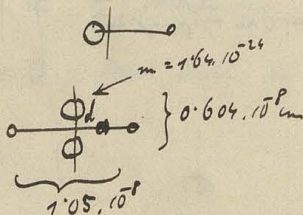 m = 1.64.10⁻²⁴
d
} 0.604.10⁻⁸ cm
1.05.10⁻⁸